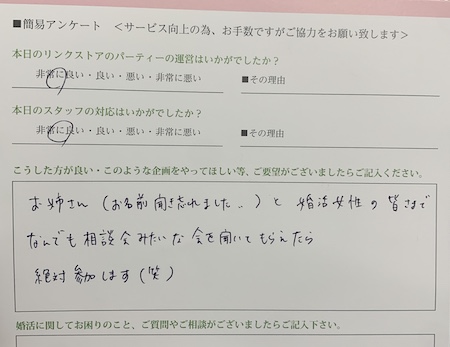 ■簡易アンケート ＜サービス向上の為、お手数ですがご協力をお願い致します＞
本日のリンクストアのパーティーの運営はいかがでしたか？
非常に良い・良い・悪い・非常に悪い ■その理由
本日のスタッフの対応はいかがでしたか？
非常に良い・良い・悪い・非常に悪い ■その理由
こうした方が良い・このような企画をやってほしい等、ご要望がございましたらご記入ください。
お姉さん（お名前聞き忘れました..）と婚活女性の皆さまで
なんでも相談会みたいな会を開いてもらえたら
絶対参加します（笑）
婚活に関してお困りのこと、ご質問やご相談がございましたらご記入下さい。